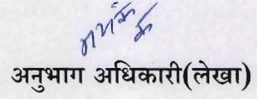 अनुभाग अधिकारी(लेखा)